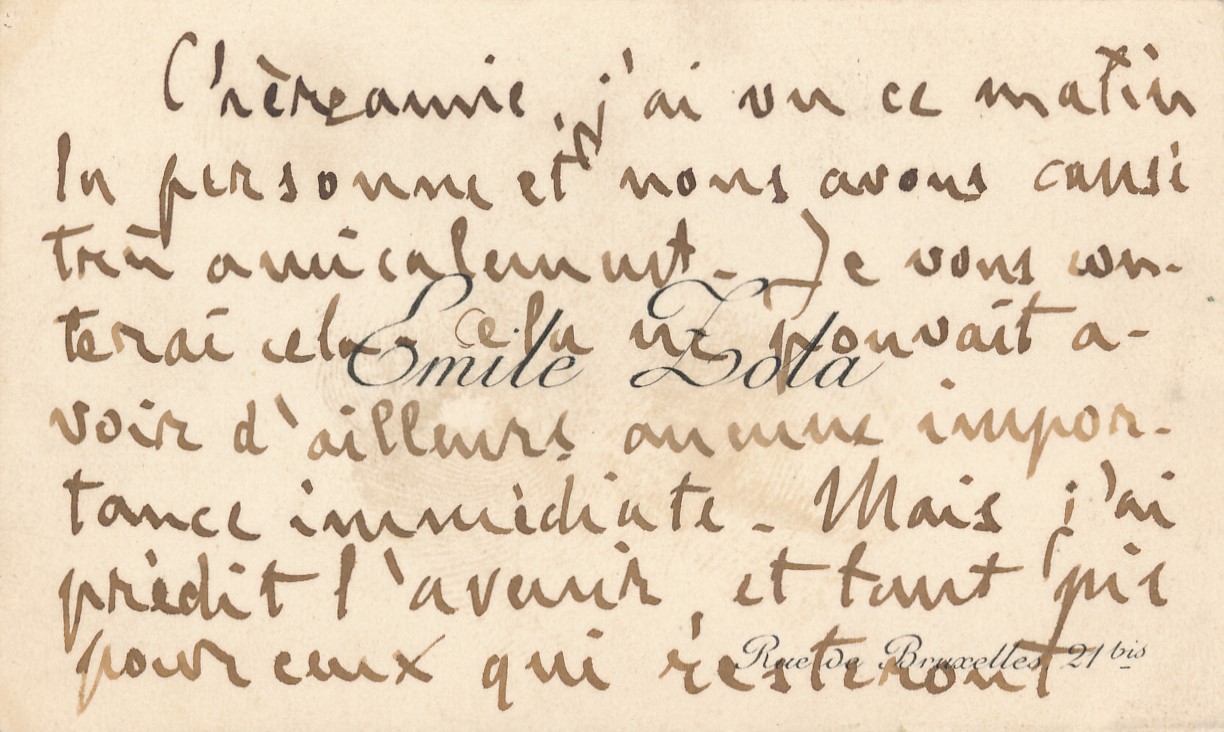 Chère amie, j'ai vu ce matin
la personne et nous avons causé
très amicalement. Je vous con-
terai cela. Cela ne pouvait a-
Emile Zola
voir d'ailleurs aucune impor-
tance immédiate. Mais j'ai
prédit l'avenir, et tant pis
pour ceux qui resteront
Rue de Bruxelles, 21 bis